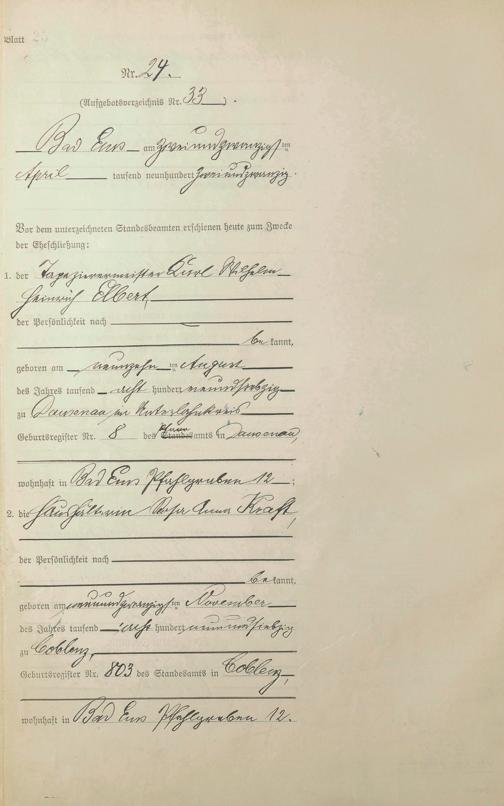 Blatt 25
Nr. 24.
(Aufgebotsverzeichnis Nr. 33).
Bad Ems am zweiundzwanzigsten
April tausend neunhundert zweiundzwanzig.
Vor dem unterzeichneten Standesbeamten erschienen heute zum Zwecke
der Eheschließung:
1. der Tapezierermeister Karl Wilhelm
Heinrich Elbert,
der Persönlichkeit nach
bekannt,
geboren am neunzehnten August
des Jahres tausend acht hundert neunundsiebzig
zu Dausenau im Unterlahnkreis
Geburtsregister Nr. 8 des Pfarramts in Dausenau,
wohnhaft in Bad Ems Pfahlgraben 12;
2. die Haushälterin Anna Kraft,
der Persönlichkeit nach
bekannt,
geboren am neunundzwanzigsten November
des Jahres tausend acht hundert neunundsiebzig
zu Coblenz,
Geburtsregister Nr. 803 des Standesamts in Coblenz,
wohnhaft in Bad Ems Pfahlgraben 12.